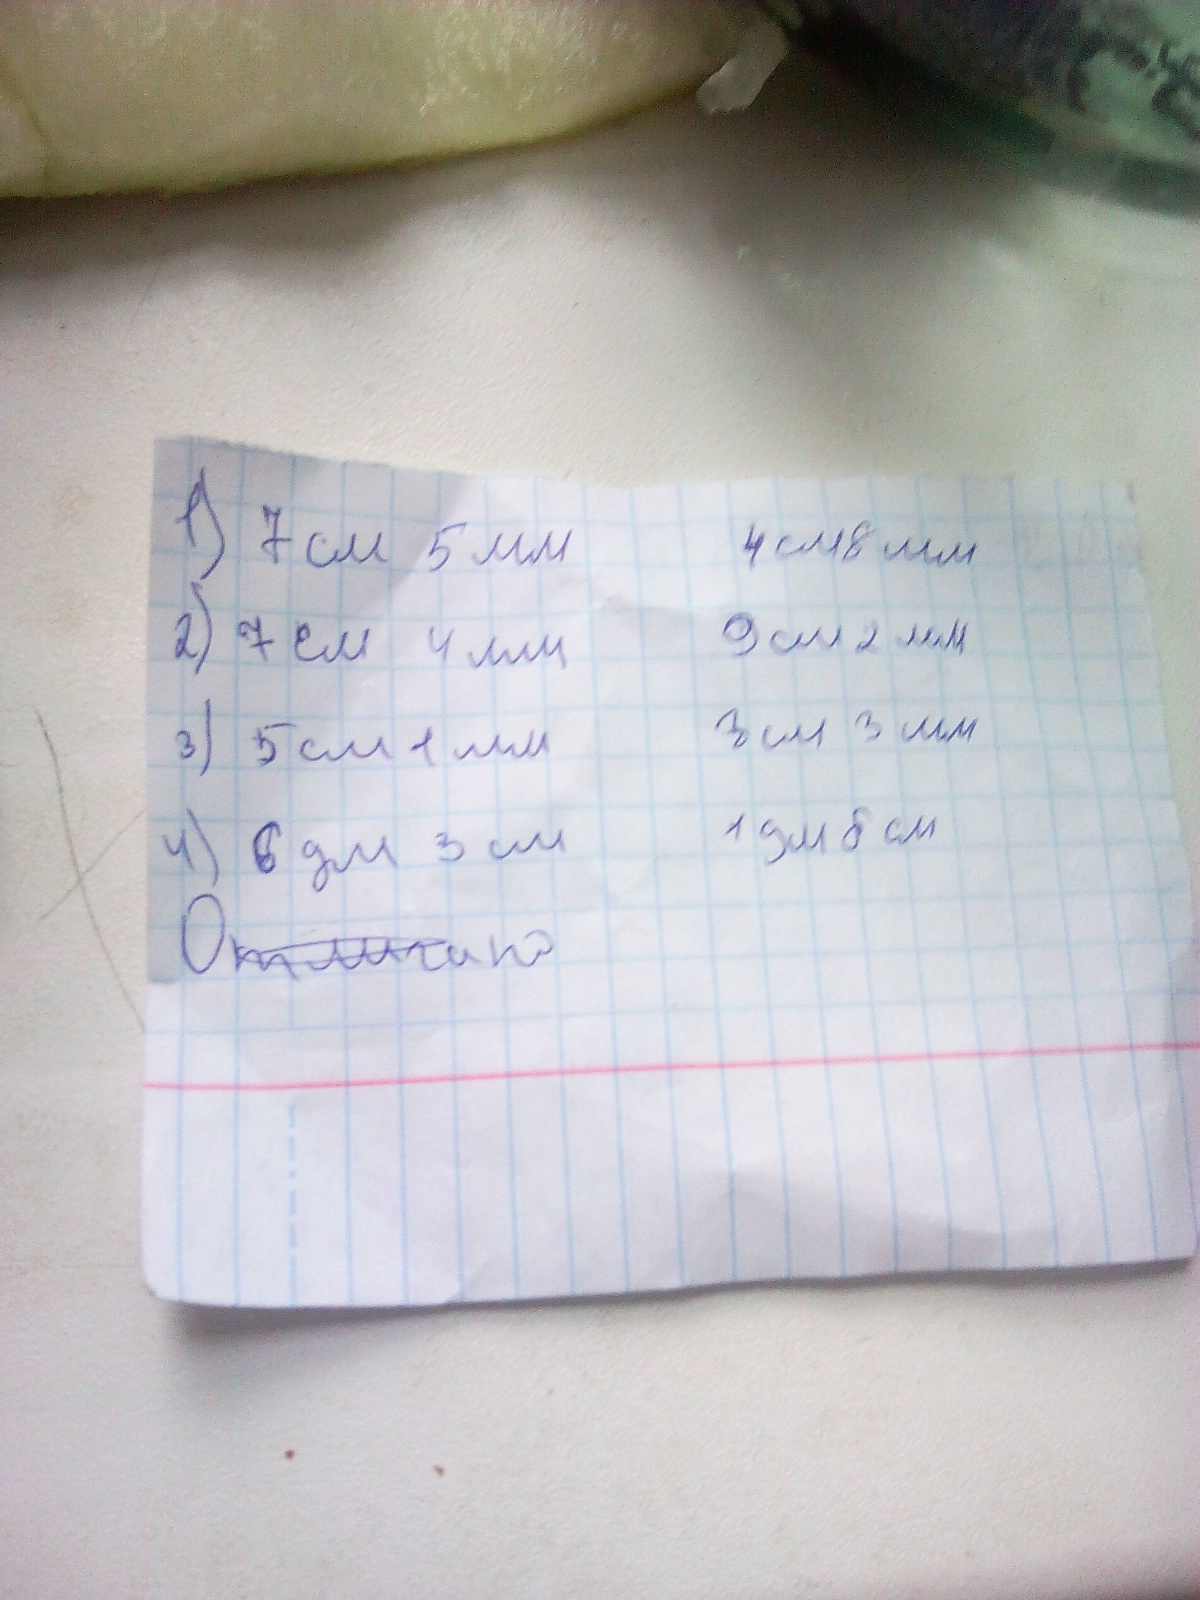 1) 7 см 5 мм 4 см 8 мм
2) 7 см 4 мм 9 см 2 мм
3) 5 см 1 мм 3 см 3 мм
4) 6 дм 3 см 1 дм 8 см
Отлично